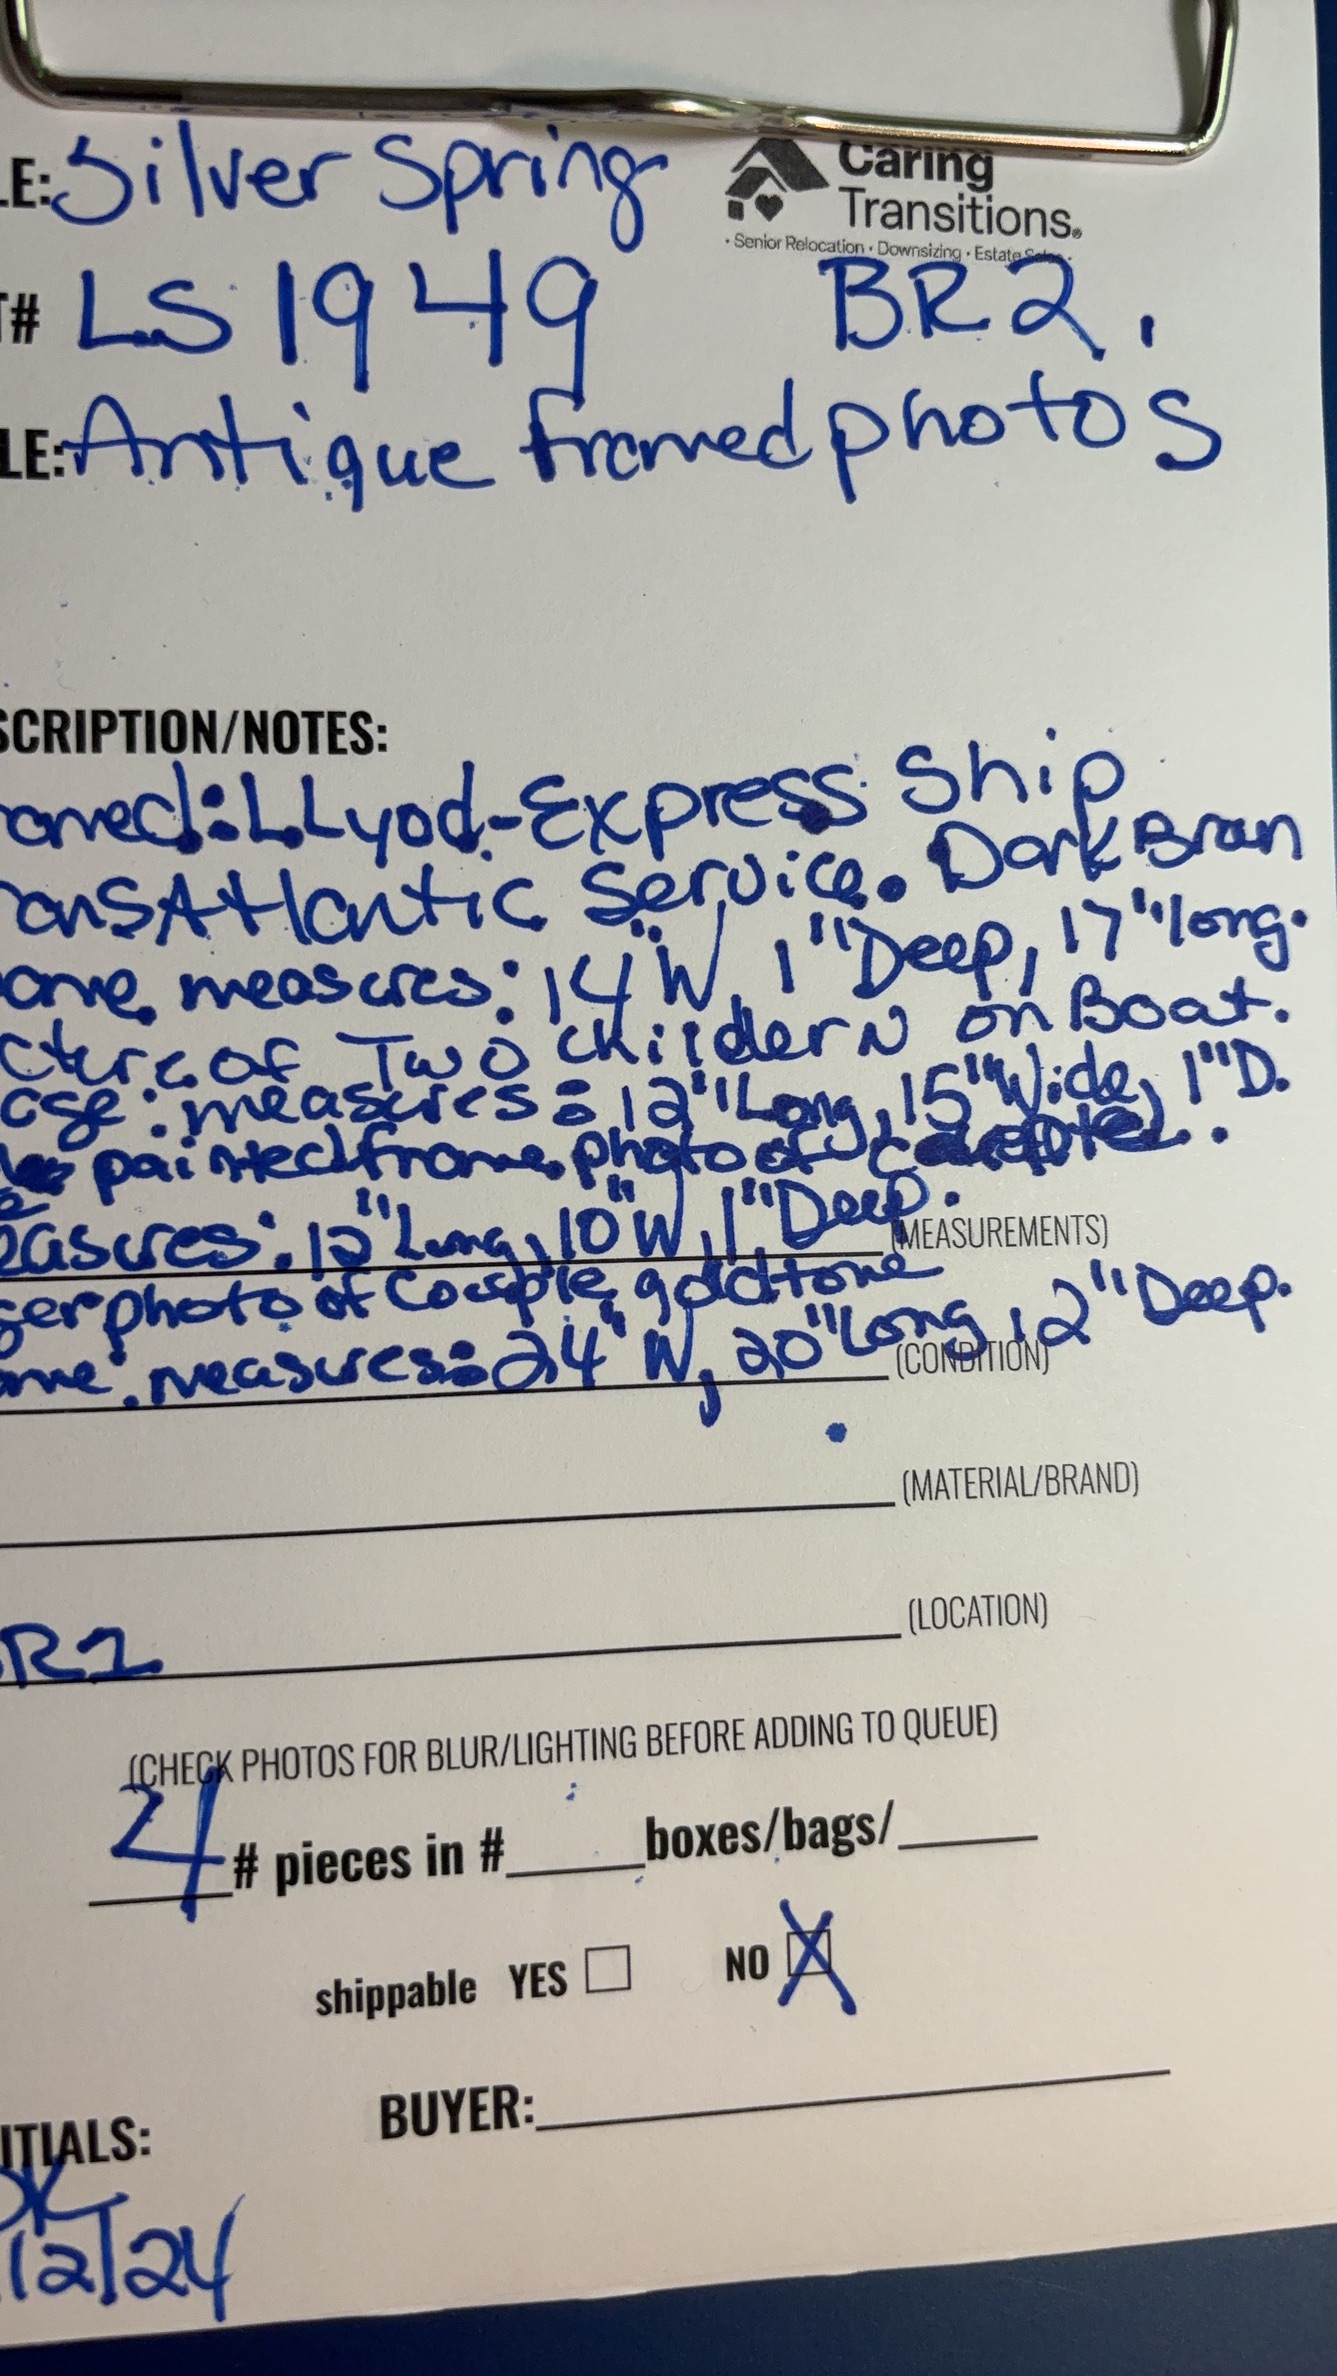 LE: Silver Spring
Caring
Transitions®
• Senior Relocation • Downsizing • Estate Sales •
T# LS 1949 BR2.
LE: Antique framed photos
SCRIPTION/NOTES:
amed: LLyod-Express Ship
ansAtlantic Service. Dark Bran
ame measures: 14"W, 1"Deep, 17"long.
cture of Two Chiildern on Boat.
measures: 12"Long, 15"Wide, 1"D.
painted frame photo of
easures: 12"Long, 10"W, 1"Deep. (MEASUREMENTS)
ger photo of Couple goldtone
ame measures: 24"W, 20"Long, 2"Deep.
(CONDITION)
(MATERIAL/BRAND)
(LOCATION)
(CHECK PHOTOS FOR BLUR/LIGHTING BEFORE ADDING TO QUEUE)
4 # pieces in #_____boxes/bags/_____
shippable YES NO X
BUYER:
ITIALS:
12/24